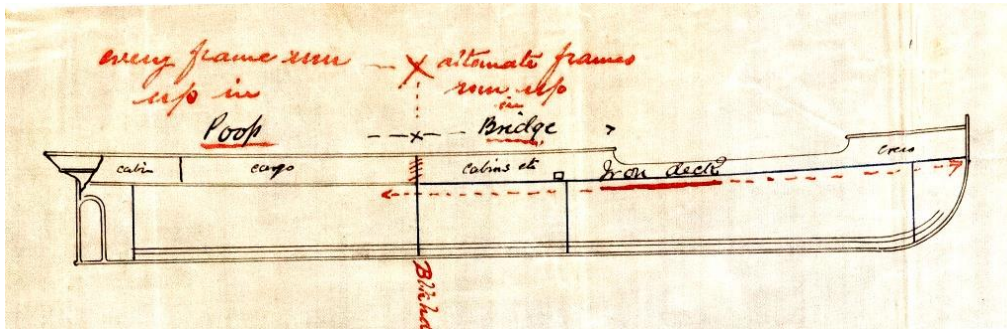 every frame run
up in
alternate frames
run up
in
Poop
Bridge
cabin
cargo
cabins etc
Iron deck
crew